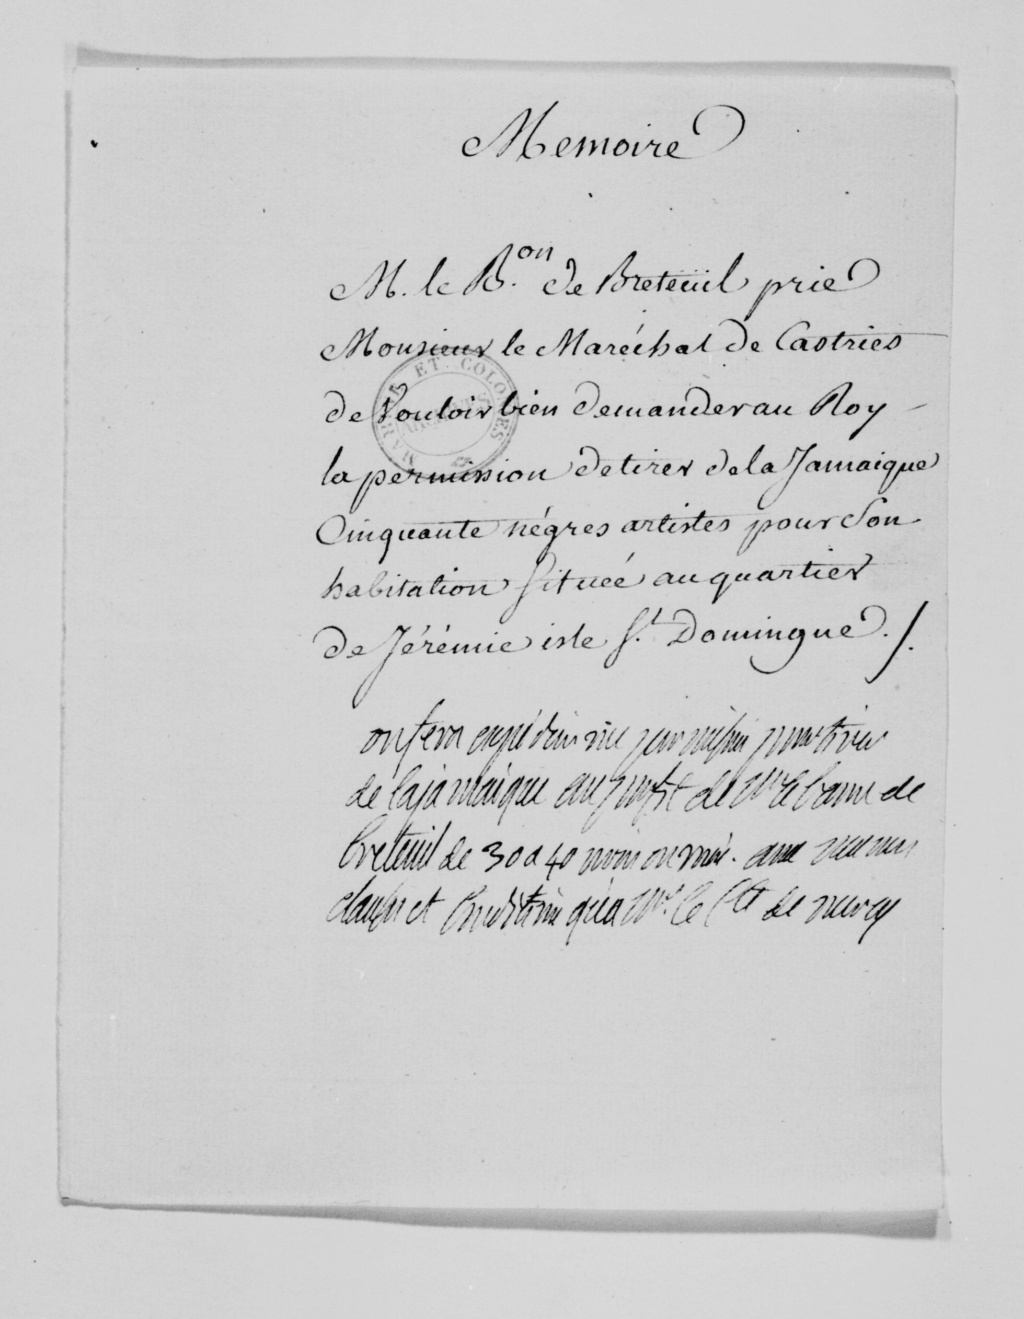 Memoire
M. le B.on de Breteuil prie
Monsieur le Maréchal de Castries
de Vouloir bien demander au Roy
la permission de tirer de la Jamaique
Cinquante nègres artistes pour Son
habitation Située au quartier
de Jérémie isle St. Domingue ./.
on fera expédier une permission pour tirer
de la jamaique au profit de Mr le baron de
breteuil de 30 a 40 noirs ou
et condition qu'a Mr. le Cte de
MARINE ET COLONIES
ARCHIVES